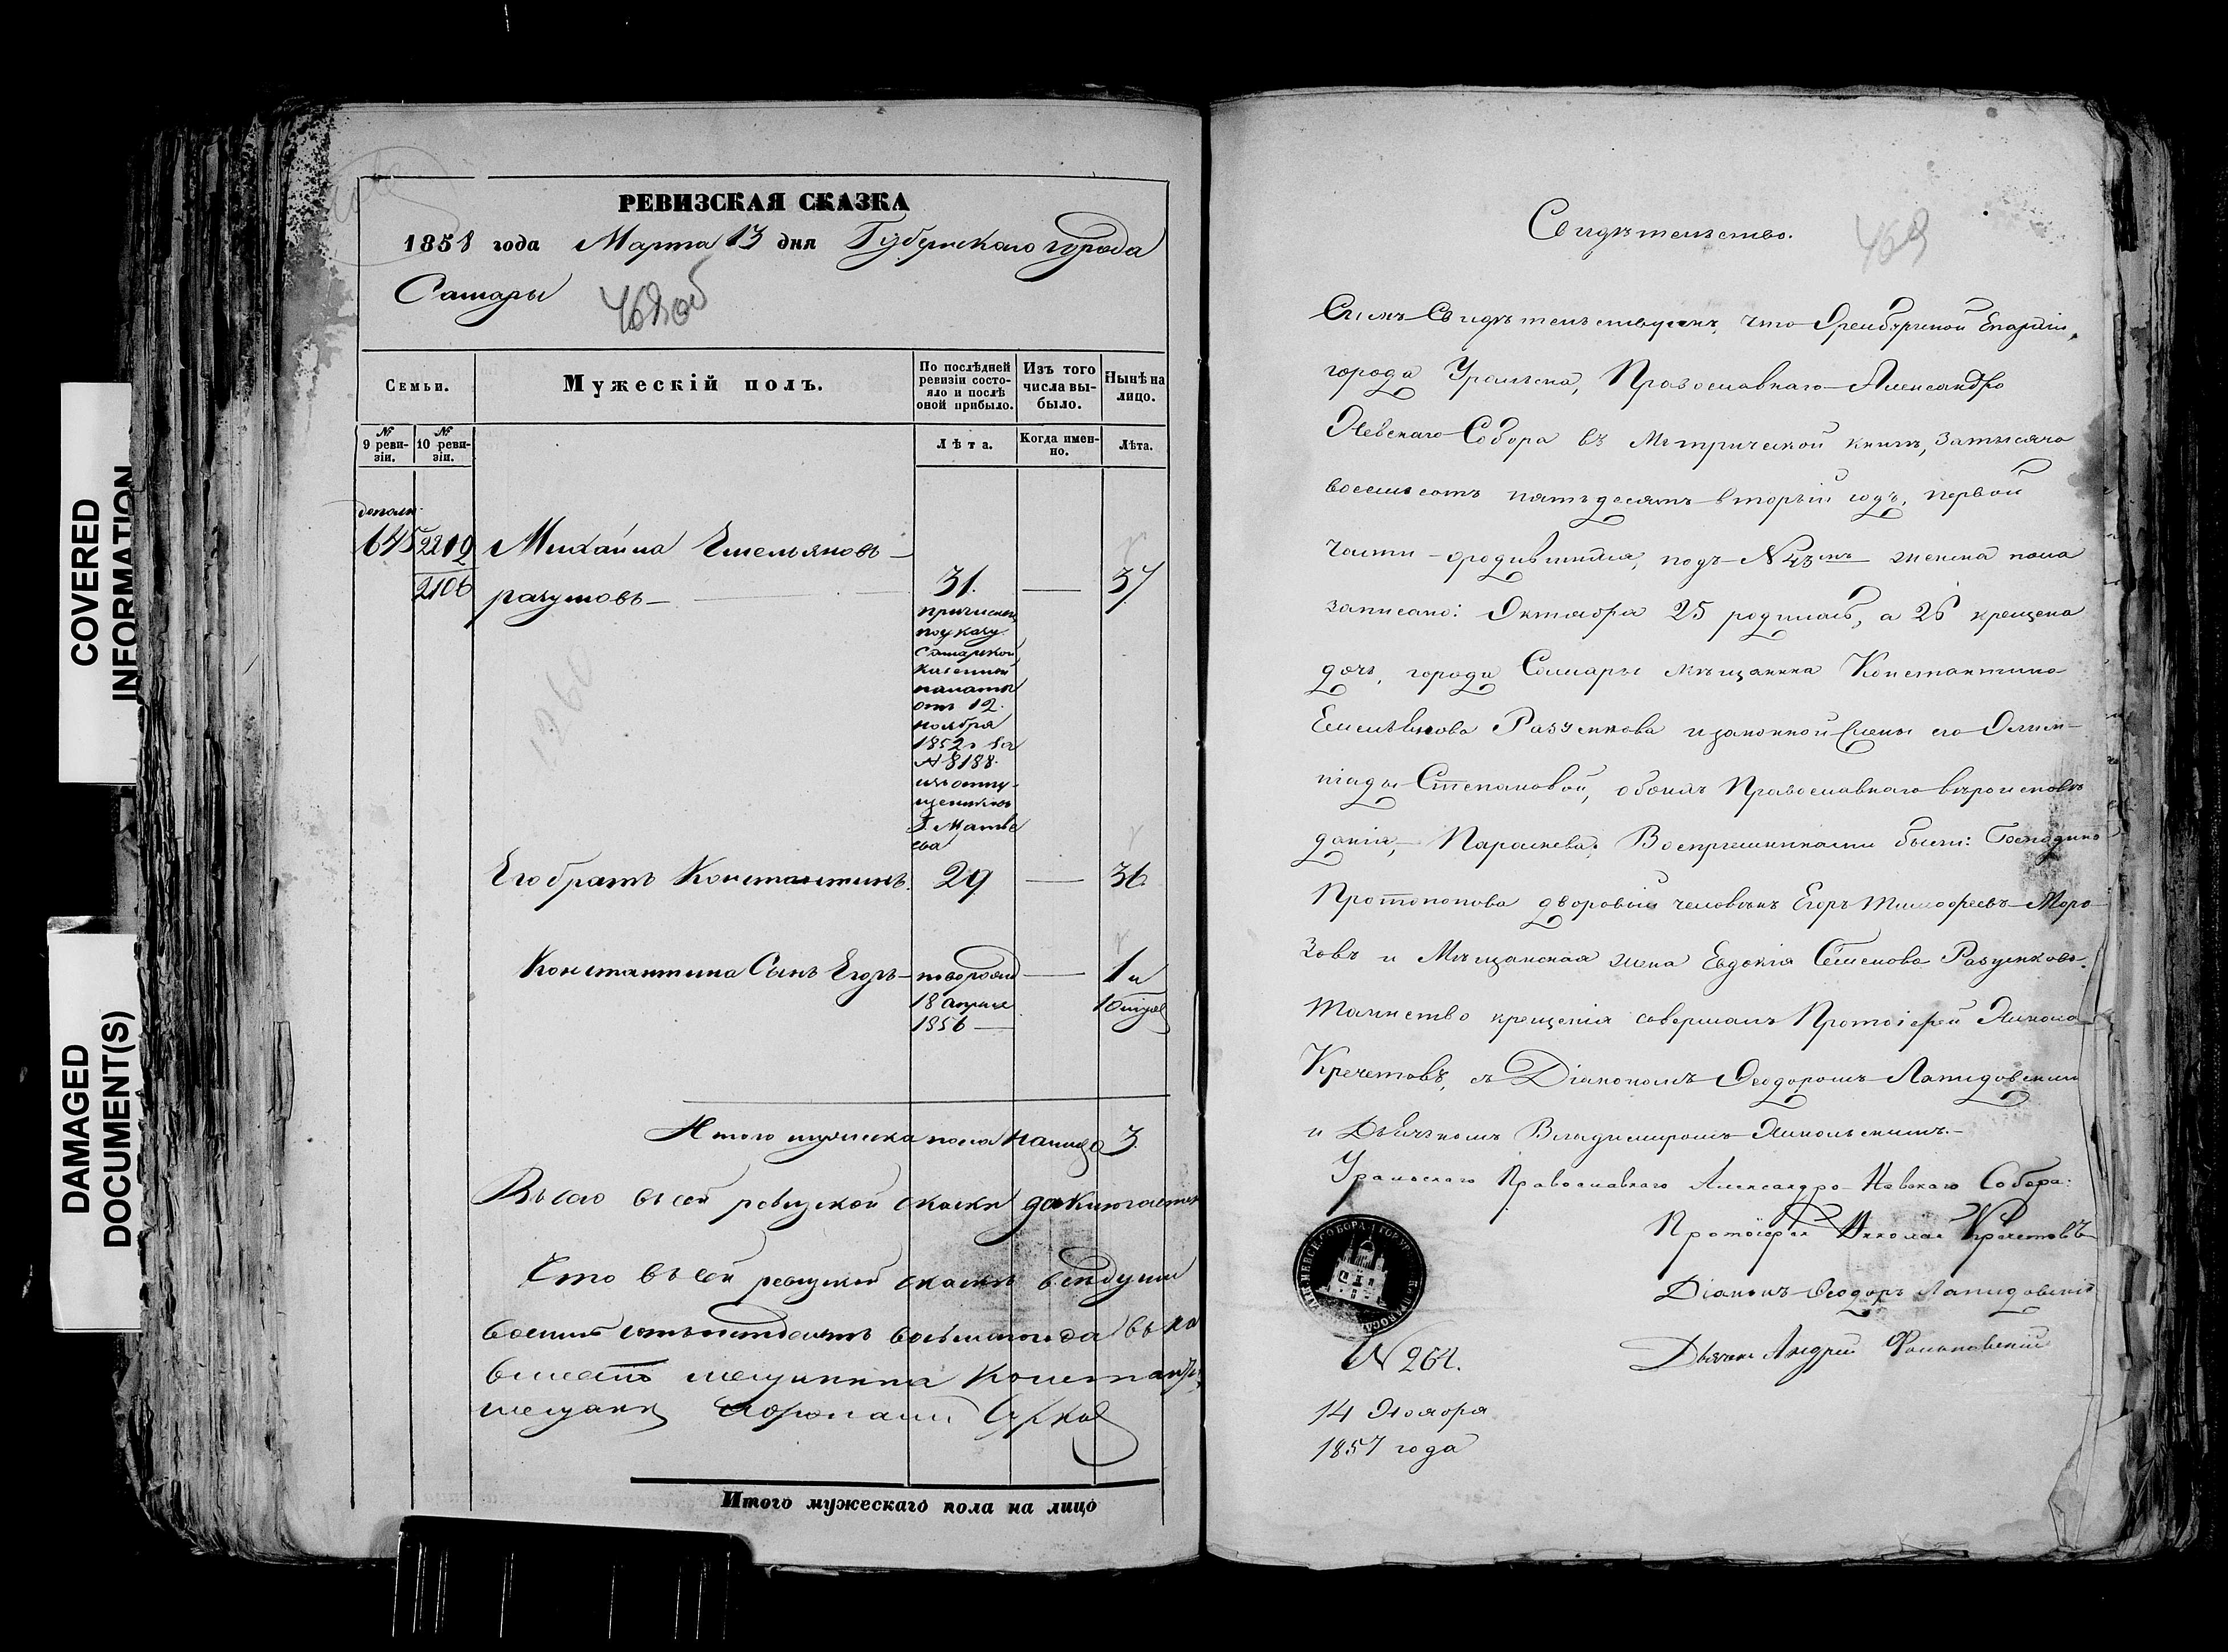 COVERED
INFORMATION
DAMAGED
DOCUMENT(S)
РЕВИЗСКАЯ СКАЗКА
1858 года Марта 13 дня Губернскаго города
Самары
468 об
Семьи.
Мужескій полъ.
По послѣдней
ревизіи состо-
яло и послѣ
оной прибыло.
Изъ того
числа вы-
было.
Нынѣ на
лицо.
№
9 реви-
зіи.
№
10 реви-
зіи.
Лѣта.
Когда имен-
но.
Лѣта.
дополн.
645 2219 Михаила Емельяновъ
2106 разумовъ 31. — 37
причислен
по указу
Самарской
казенной
палаты
отъ 12.
ноября
1852 г за
№ 8188.
1260
Его братъ Константинъ. 29 — 36
Константина Сынъ Егоръ новорожд — 1 и
18 апреля
1856
10 месяц
Итого мужеска пола налицо 3.
въ сей ревизской сказки
Что въ сей ревизской сказки все души
вместо мещанина
Итого мужескаго пола на лицо
Свидѣтельство.
469
Симъ Свидѣтельствуемъ, что Оренбургской Епархіи,
города Уральска, Православнаго Александро
Невскаго Собора въ Метрической книгѣ, за тысяча
восемьсотъ пятьдесятъ вторый годъ, первой
части о родившихся, подъ № 43мъ женска пола
записано: Октября 25 родилась, а 26 крещена
дочь, города Самары мѣщанина Константина
Емельянова Разумкова и законной жены его Олим-
піады Степановой, обоихъ Православнаго вѣроисповѣ
данія, Параскева. Воспріемниками были: Господина
Протопопова дворовый человѣкъ Егоръ Тимофеевъ Моро
зовъ и Мѣщанская жена Евдокія Семенова Разумкова.
Таинство крещенія совершалъ Протоіерей Никола
Кречетовъ, съ Діакономъ Ѳеодоромъ Лапидовскимъ
и Дьячкомъ Владимиромъ Никольскимъ.
Уральскаго Православнаго Александро-Невскаго Собора:
Протоіерей Николай Кречетовъ
Діаконъ Ѳеодоръ Лапидовскій
Дьячекъ Андрей
№ 264.
14 Ноября
1857 года